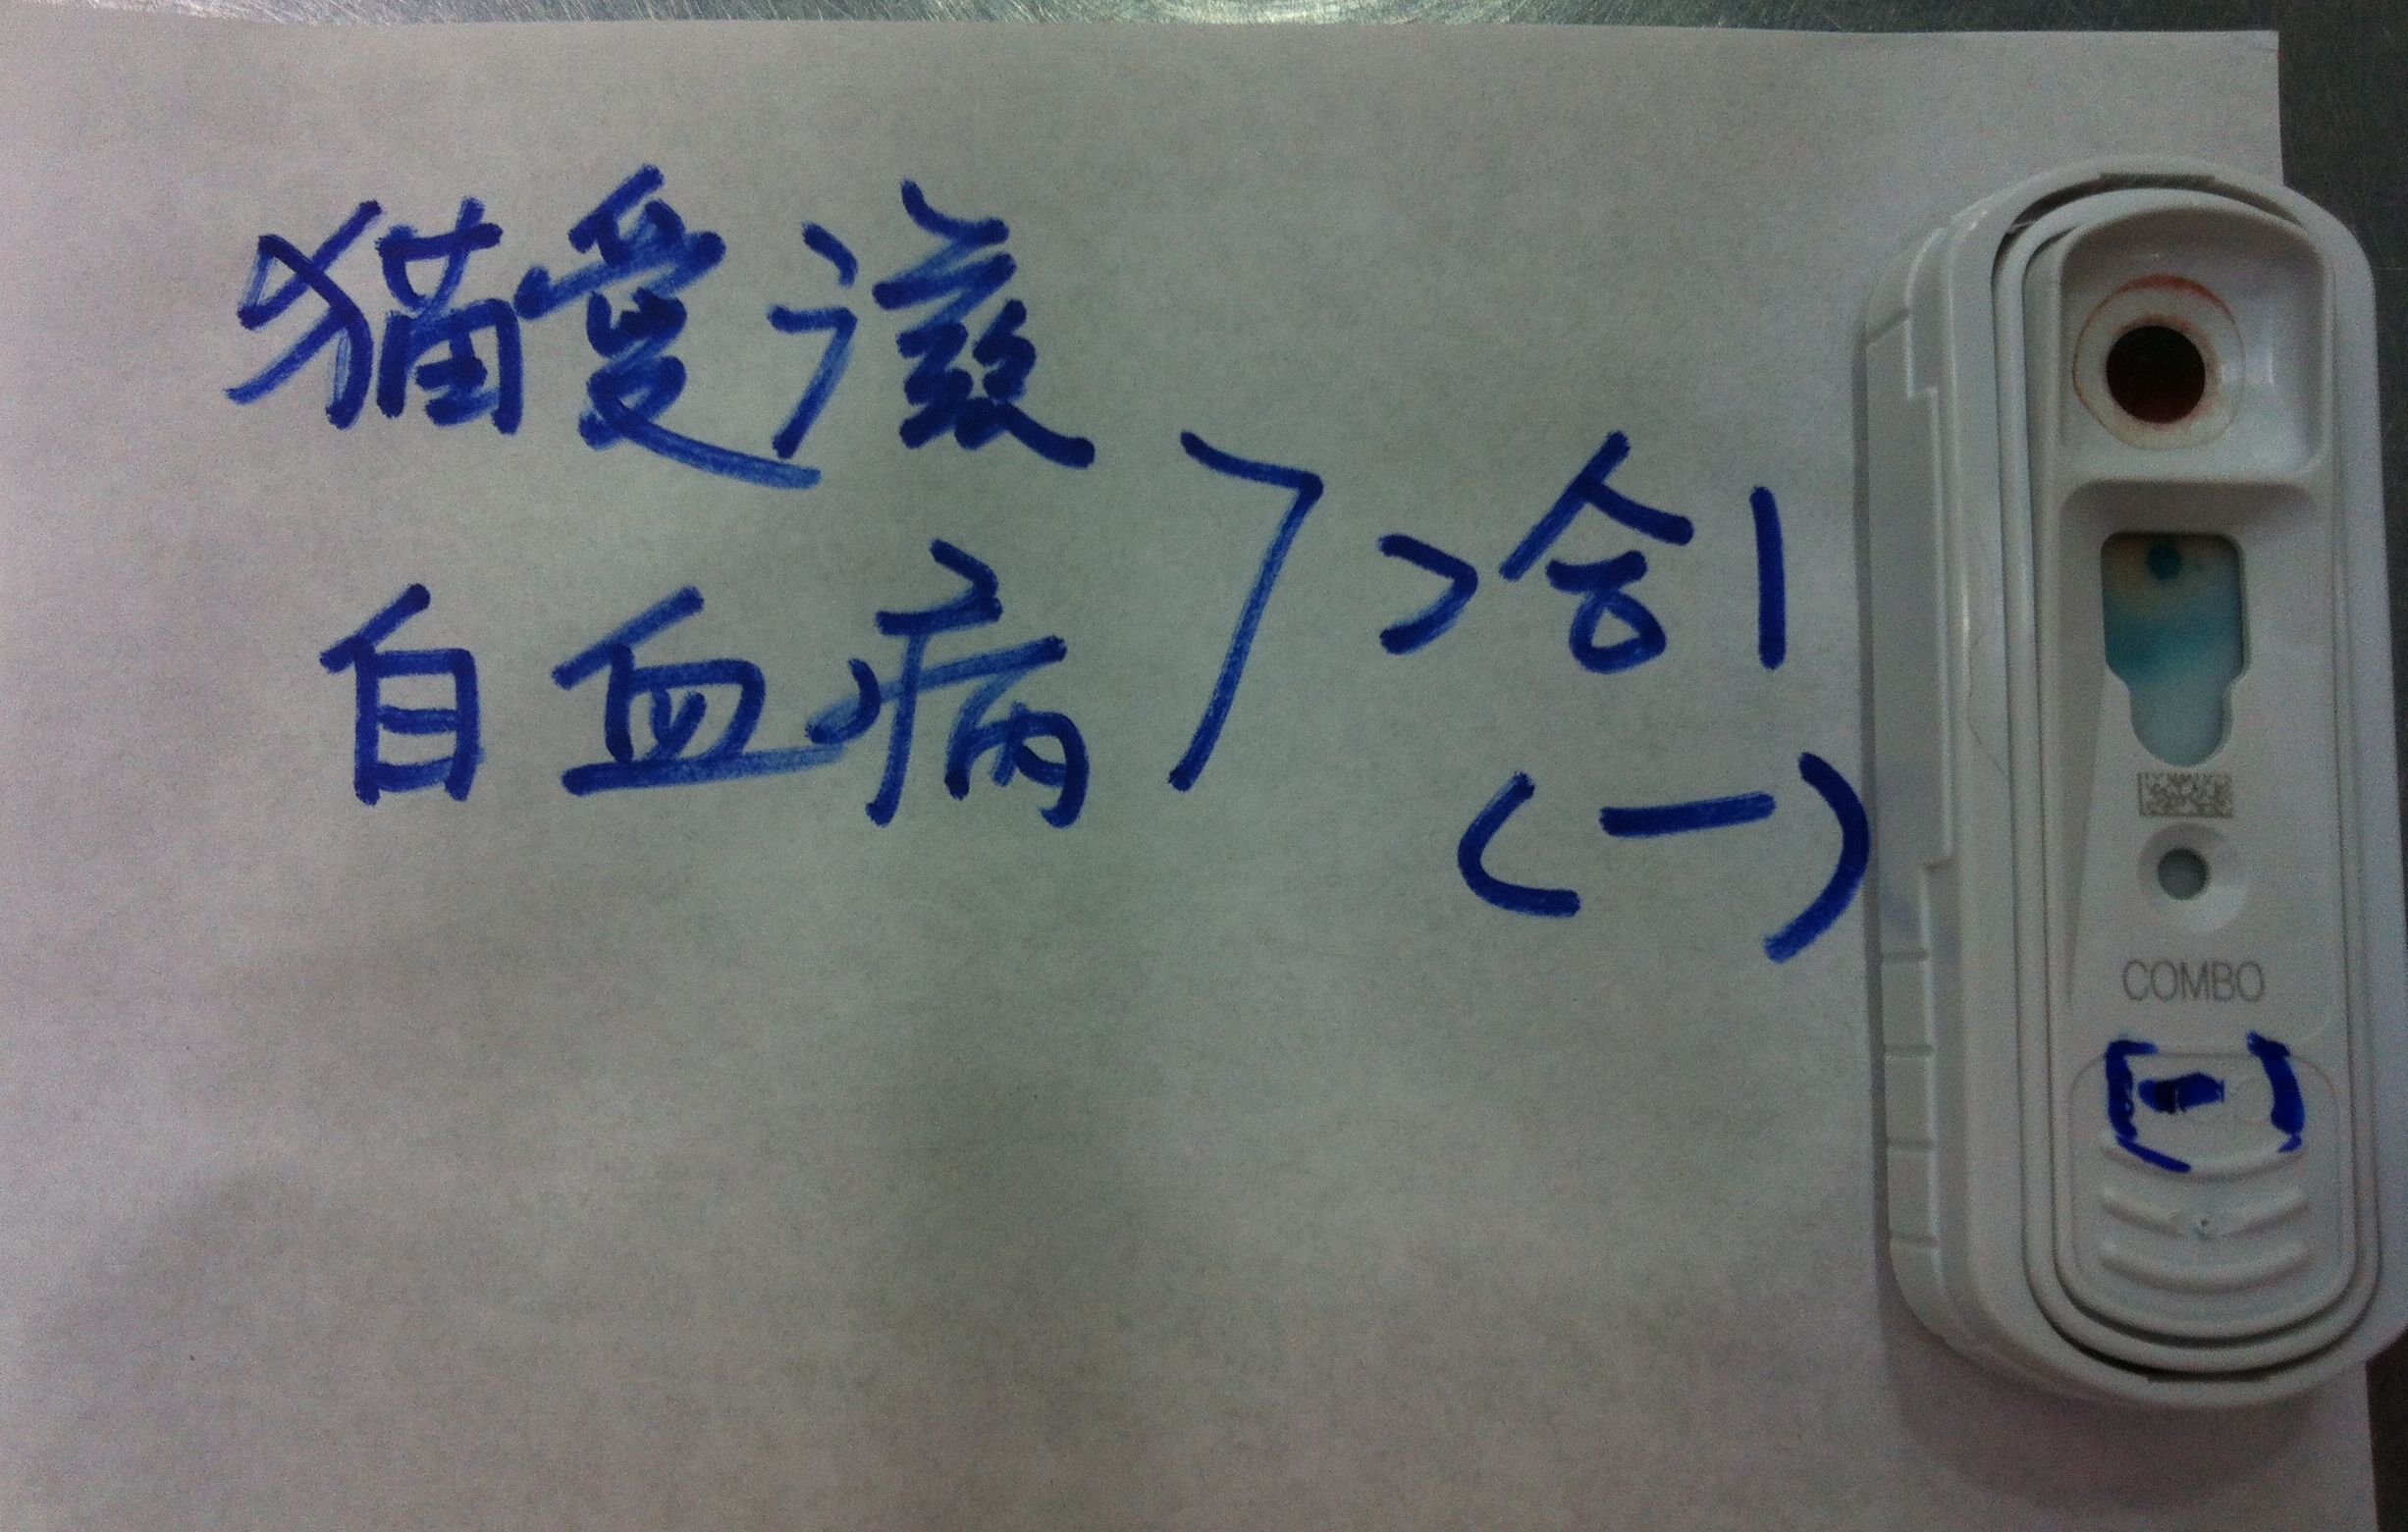 猫愛滋
白血病
2合1
(一)
COMBO
(-)